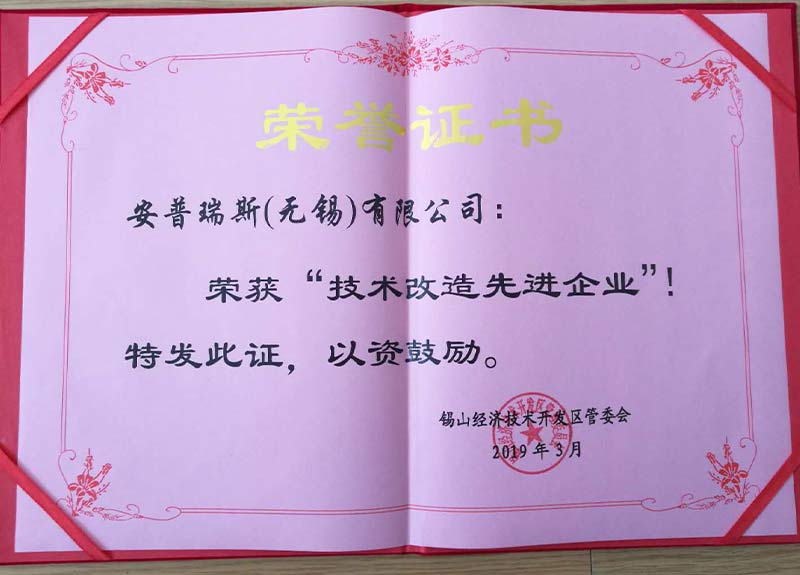 荣誉证书
安普瑞斯(无锡)有限公司：
荣获“技术改造先进企业”！
特发此证，以资鼓励。
锡山经济技术开发区管委会
2019年3月